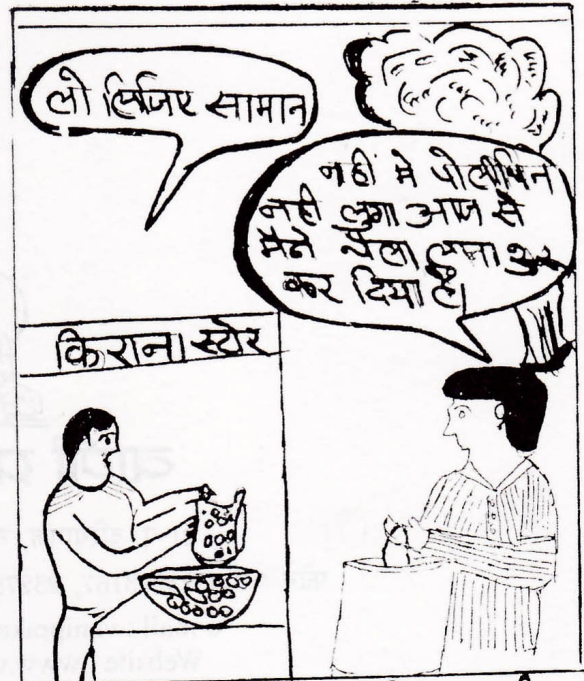 लो लिजिए सामान
नहीं मे पोलीथिन
नही लुगा आज से
मैने थैला लाना शुरू
कर दिया है।
किराना स्टोर